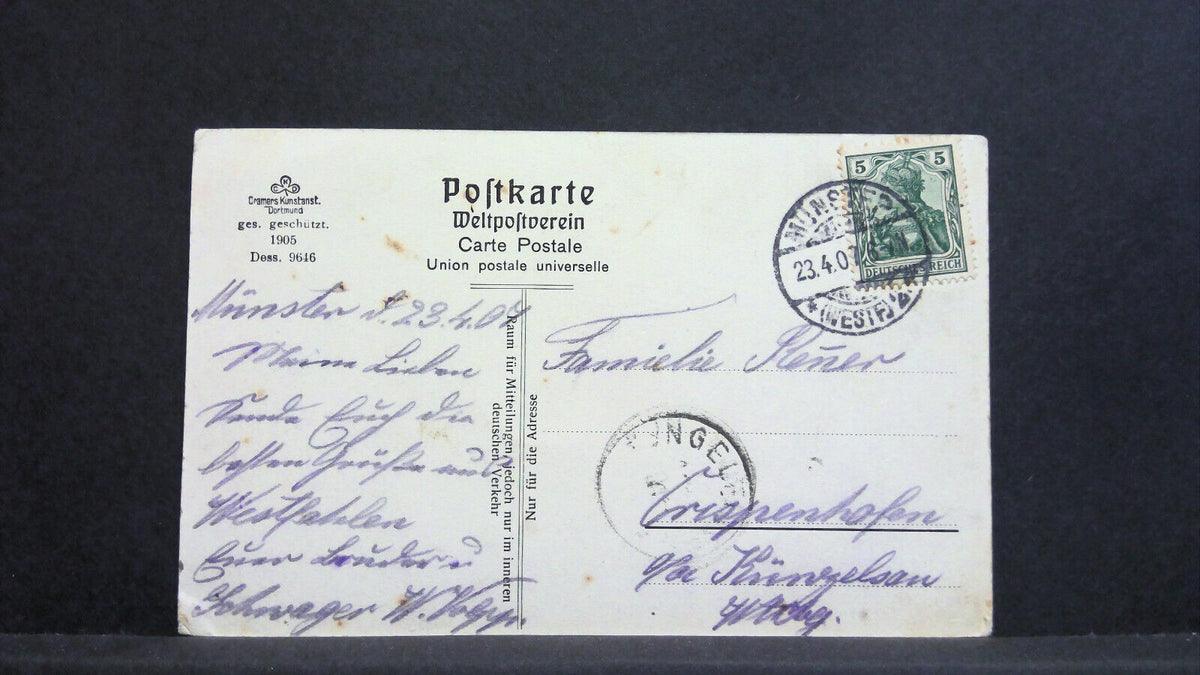 Cramers Kunstanst.
Dortmund
ges. geschützt.
1905
Dess. 9646
Poſtkarte
Weltpoſtverein
Carte Postale
Union postale universelle
5 5
DEUTSCHES REICH
MÜNSTER
23.4.0
(WESTF.) 2
Münster d. 23.4.07
Meine Lieben
Sende Euch die
besten Grüße aus
Westfahlen
Euer Bruder u
Schwager W.
Raum für Mitteilungen, jedoch nur im inneren
deutschen Verkehr
Nur für die Adresse
Familie
NGEL
Crispenhofen
Künzelsau
Wttbg.